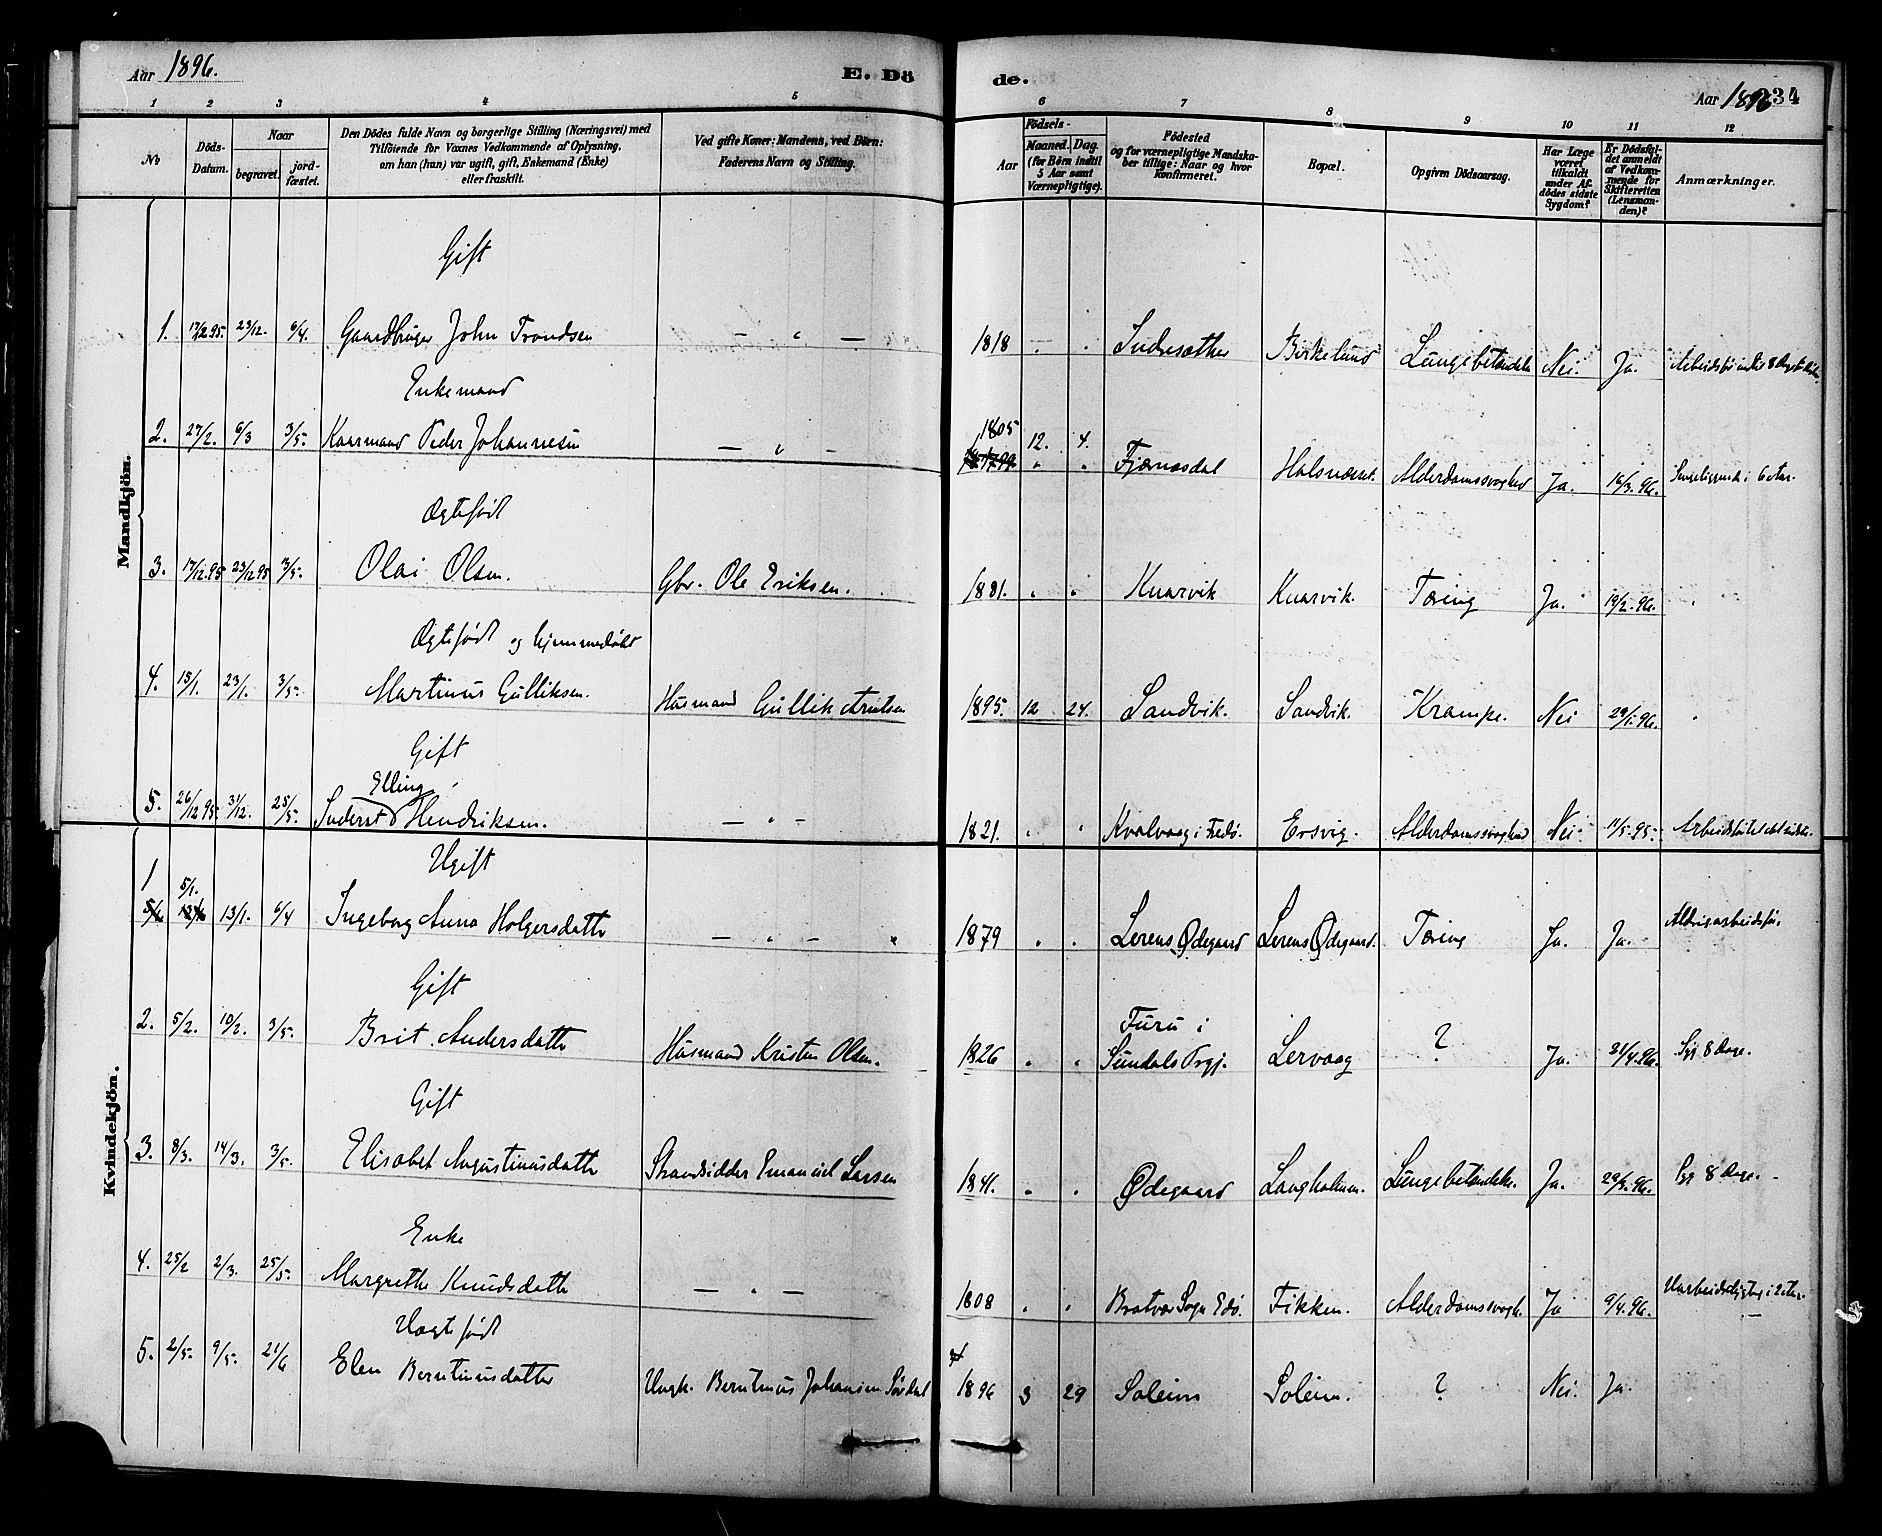 Aar 1896.
E. Dö
de.
Aar 1896
234
1 2 3 4 5 6 7 8 9 10 11 12
No
Döds-Datum.
Naar
begravet.
jordfæstet.
Den Dödes fulde Navn og borgerlige Stilling (Næringsvei) med
Tilföiende for Voxnes Vedkommende af Oplysning,
om han (hun) var ugift, gift, Enkemand (Enke)
eller fraskilt.
Ved gifte Koner: Mandens, ved Börn:
Faderens Navn og Stilling.
Födsels-
Aar
Maaned. Dag.
(for Börn indtil
5 Aar samt
Værnepligtige).
Födested
og for værnepligtige Mandskaber
tillige: Naar og hvor
konfirmeret.
Bopæl.
Opgiven Dödsaarsag.
Har Læge
været
tilkaldt
under Afdödes
sidste
Sygdom?
Er Dödsfaldet
anmeldt
af Vedkommende
for
Skifteretten
(Lensmanden)?
Anmærkninger.
Mandkjön.
Gift
1. 17/12 95. 23/12. 6/4. Gaardbruger John Trondsen — " — 1818 " " Indresæther Birkelund Lungebetændelse Nei. Ja.
Enkemand
2. 27/2. 6/3 3/5. Kaarmand Peder Johannesen — " — 1805 12. 4. Fjærnesdal Halsnæset. Alderdomssvaghed Ja. 16/3. 96. Sengeliggende i 6 Aar.
Ægtefødt
3. 17/12. 95 23/12 95 3/5. Olai Olsen. Gbr. Ole Eriksen. 1881. " " Knarvik Knarvik. Tæring Ja. 19/2. 96. "
Ægtefødt og hjemmedøbt
4. 15/1. 23/1. 3/5. Martinus Gulliksen. Husmand Gullik Arntsen 1895. 12 24. Sandvik. Sandvik. Krampe. Nei 29/1. 96. "
Gift
Elling
5. 26/12 95. 31/12. 25/5. Inderst Hendriksen. — " — 1821. " " Kvalvaag i Fredø. Ersvig. Alderdomssvaghed Nei. 11/5. 95.
Kvindekjön.
Ugift
1 5/1. 13/1. 6/4 Ingeborg Anna Holgersdatter — " — " 1879 " " Lerens Ødegaard Lerens Ødegaard. Tæring Ja. Ja. Aldrig arbeidsfør.
Gift
2. 5/2. 10/2. 3/5. Brit Andersdatter Husmand Kristen Olsen. 1826 " " Furu i
Sundals Prgj. Lervaag ? Ja. 21/4. 96. Syg 8 Dage.
Gift
3. 8/3. 14/3. 3/5. Elisabet Augustinusdatter Strandsidder Emanuel Larsen 1841. " " Ødegaard Langholmen. Lungebetændelse. Ja. 29/3. 96. Syg 8 Dage.
Enke
4. 25/2 2/3. 25/5. Margrethe Knudsdatter — " — 1808 " " Bratvær Sogn Edø. Fikken. Alderdomssvagh. Ja 9/4. 96. Uarbeidsdygtig i 2 Aar.
Uægtefødt
5. 2/5. 9/5. 21/6 Elen Berntinusdatter Ungk. Berntinus Johansen Sørdal 1896 3 29 Soleim Soleim. ? Nei. Ja.